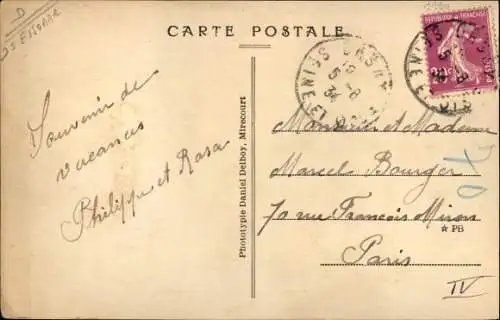 CARTE POSTALE
D
Souvenir de
vacances
Philippe et Rosa
Phototypie Daniel Delboy, Mirecourt
Monsieur et Madame
Marcel Bourger
70 rue François Miron
★ PB
Paris
IV
40
RÉPUBLIQUE FRANÇAISE